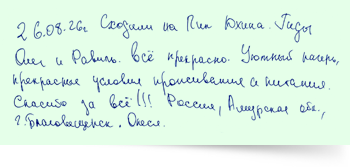 26.08.26г Сходили на Пик Юхина. Гиды
Олег и Равиль. Всё прекрасно. Уютный лагерь,
прекрасные условия проживания и питания.
Спасибо за всё!!! Россия, Амурская обл.,
г. Благовещенск. Олеся.